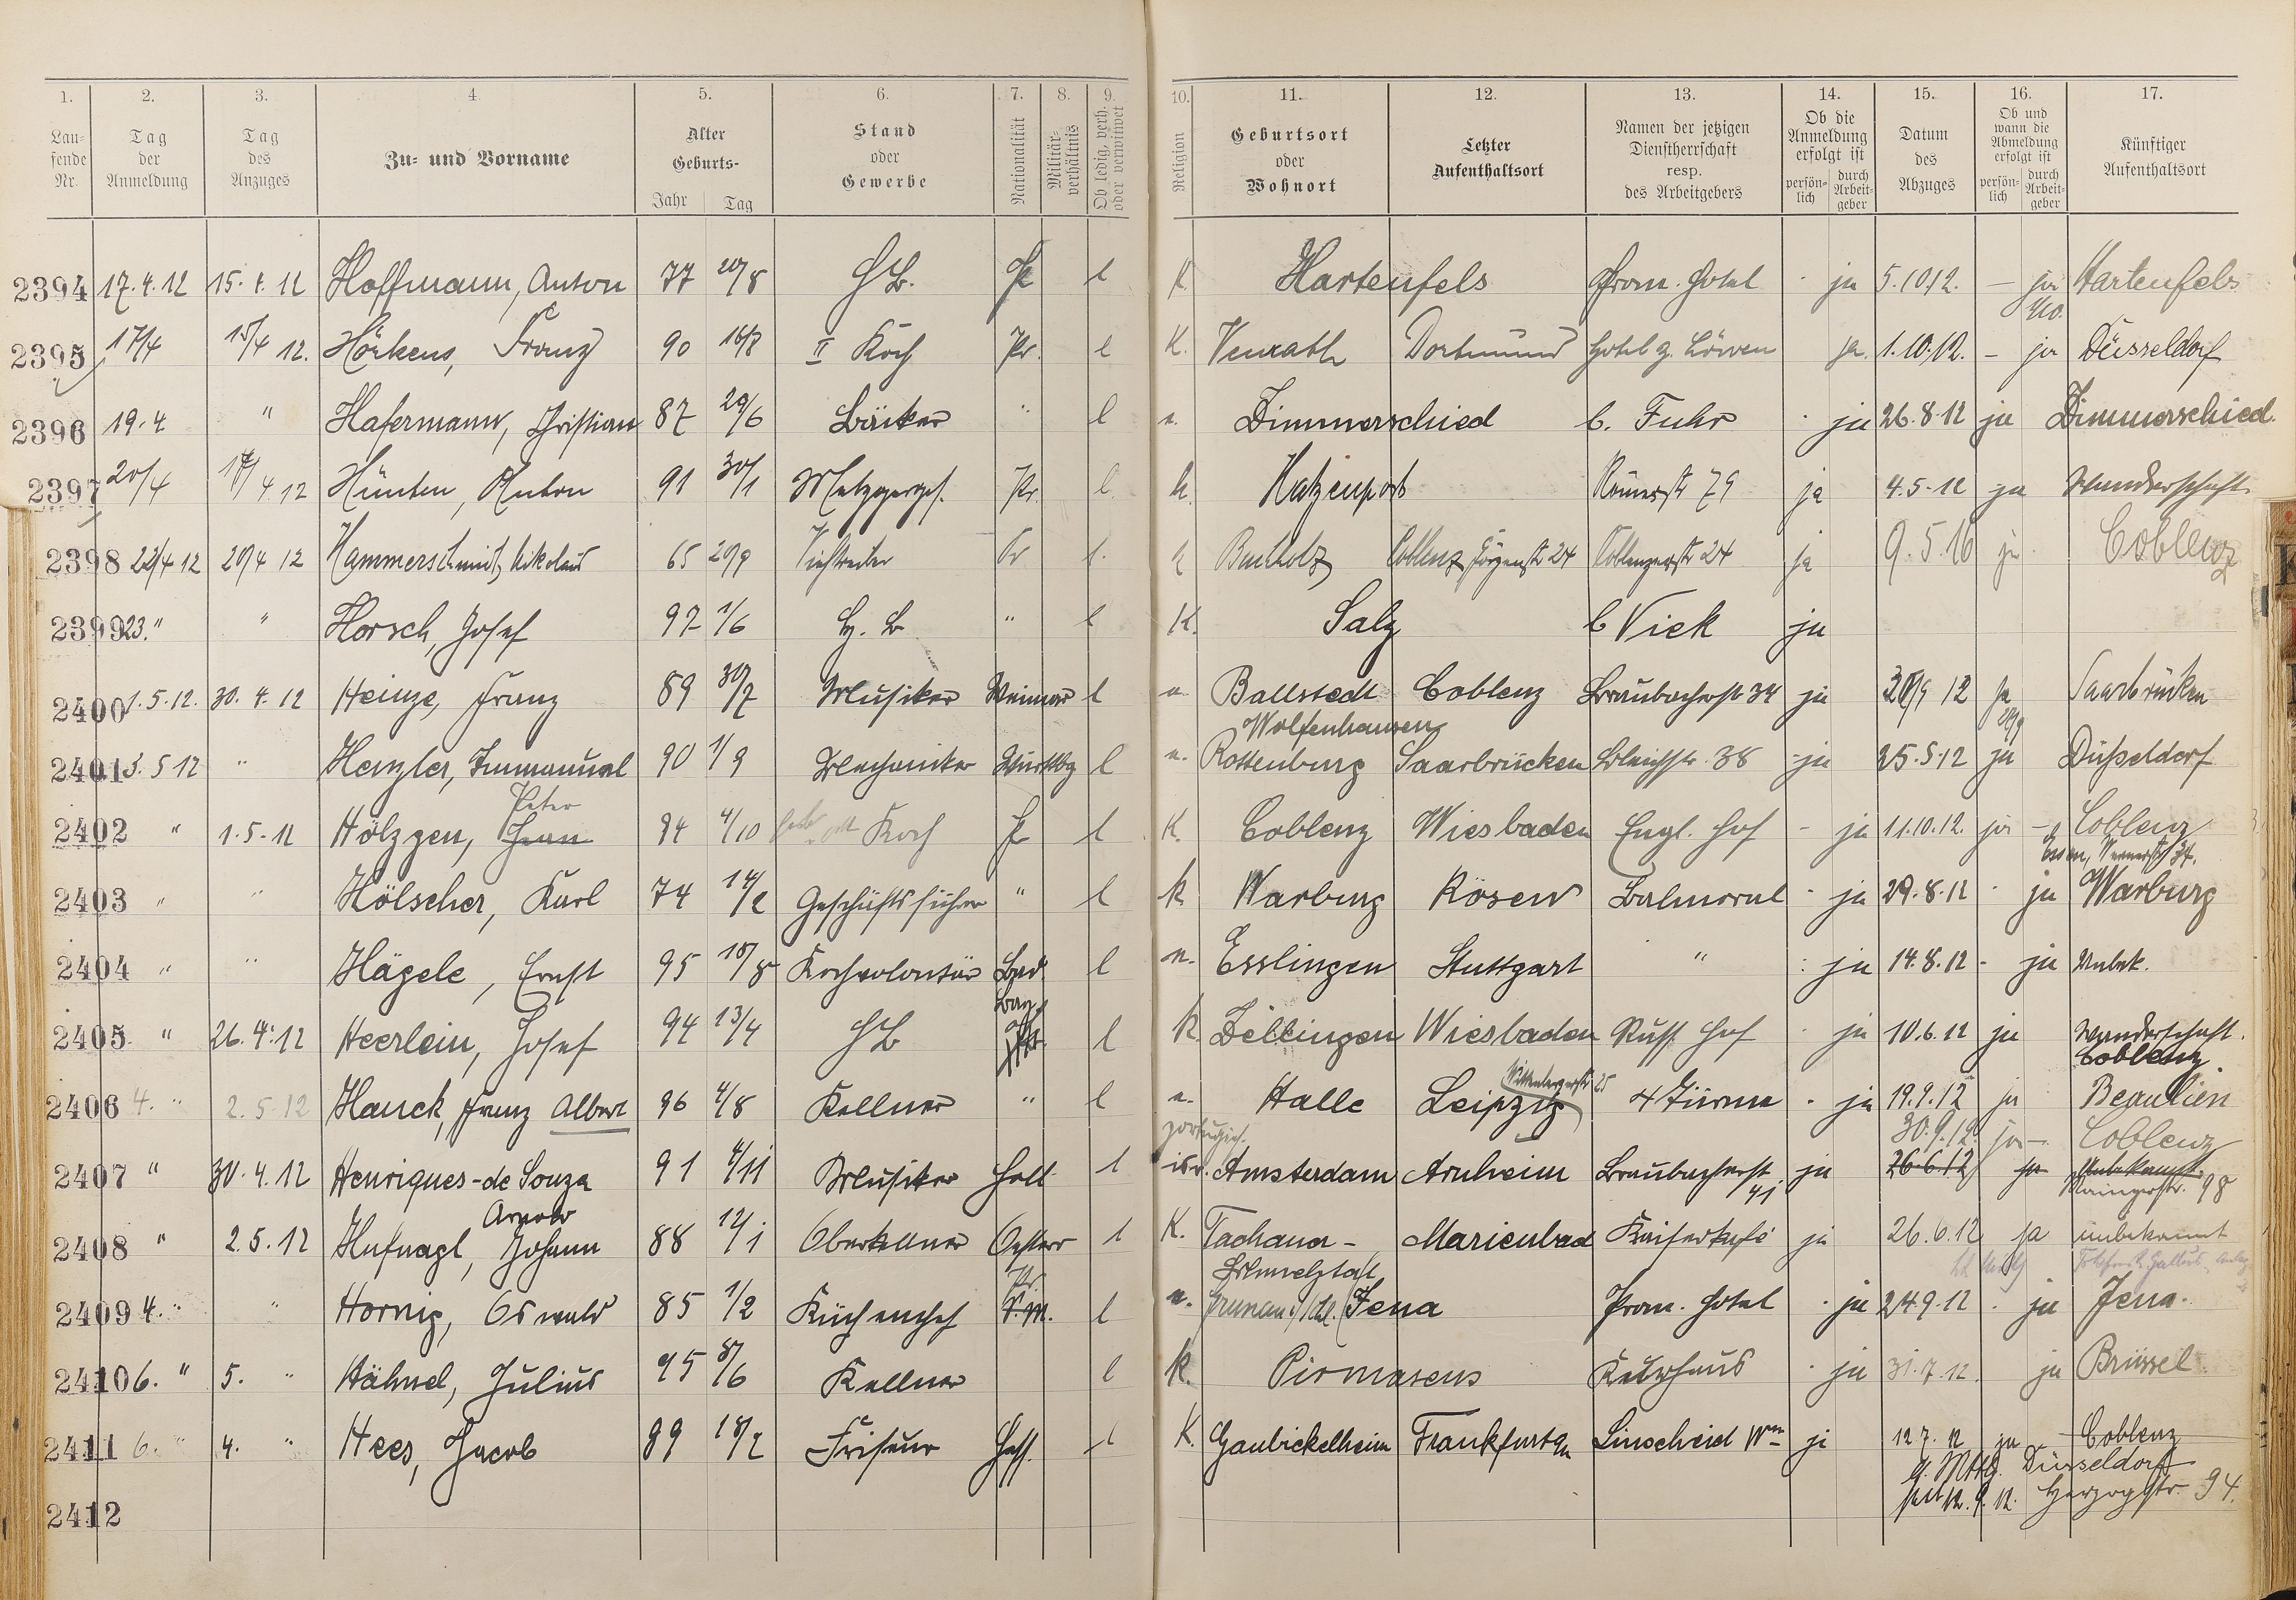 1. 2. 3. 4. 5. 6. 7. 8. 9. 10. 11. 12. 13. 14. 15. 16. 17.
Lau-fende Nr. Tag der Anmeldung Tag des Anzuges Zu- und Vorname Alter Geburts- Jahr Tag Stand oder Gewerbe Nationalität Militär-verhältnis Ob ledig, verh. oder verwitwet Religion Geburtsort oder Wohnort Letzter Aufenthaltsort Namen der jetzigen Dienstherrschaft resp. des Arbeitgebers Ob die Anmeldung erfolgt ist persön-lich durch Arbeit-geber Datum des Abzuges Ob und wann die Abmeldung erfolgt ist persön-lich durch Arbeit-geber Künftiger Aufenthaltsort
2394 17.4.12 15.4.12 Hoffmann, Anton 77 20/8 HB. Pr l K Hartenfels Prom. Hotel - ja 5.10.12. - ja Hartenfels
2395 17/4 15/4 12. Hörkens, Franz 90 16/8 II Koch Pr. l K. Venrath Dortmund Hotel z. Löwen ja. 1.10.12. - ja Düsseldorf
2396 19.4 " Hafermann, Christian 87 29/6 Bäcker " l e. Dimmerschied b. Fuhr - ja 26.8.12 ja Dimmerschied.
2397 20/4 17/4 12 Hünten, Anton 91 30/1 Metzgerges. Pr. l. k. Hatzenport Römerstr 79 ja 4.5.12 ja Wanderschaft
2398 22/4 12 20/4 12 Hammerschmidt, Nikolaus 65 20/9 Viehtreiber Pr l. k Buchholz Coblenz, Görgenstr 24 Coblenzerstr 24 ja 9.5.16 ja Coblenz
2399 23. " " Horsch, Josef 97 1/6 H. B " l K. Salz b Viek ja
2400 1.5.12. 30.4.12 Heinze, Franz 89 30/7 Musiker Weimar l e. Ballstedt Coblenz Braubacherstr 34 ja 30/9 12 ja 30/9 Saarbrücken
2401 3.5 12 " Henzler, Immanuel 90 1/9 Mechaniker Württbg l e. Wolfenhausen Rottenburg Saarbrücken Bleichstr. 38 ja 25.5.12 ja Düsseldorf
2402 " 1.5.12 Hölzgen, Jean Peter 94 4/10 Koch Pr l K. Coblenz Wiesbaden Engl. Hof - ja 11.10.12. ja - Coblenz
2403 " " Hölscher, Karl 74 14/2 Geschäftsführer " l k Warburg Kösen Balmoral - ja 29.8.12 - ja Warburg
2404 " " Hägele, Ernst 95 18/8 Kochvolontär Bad. l e. Esslingen Stuttgart " ja 14.8.12 - ja Unbek.
2405 " 26.4.12 Heerlein, Josef 94 13/4 HB Bay. l k. Dettingen Wiesbaden Russ. Hof - ja 10.6.12 ja Wanderschaft. Coblenz
2406 4. " 2.5.12 Hauck, Franz Albert 96 4/8 Kellner " l e. Halle Leipzig 4 Türme - ja 19.9.12 ja Beaulieu
30.9.12. ja - Coblenz
2407 " 30.4.12 Henriques-de Souza 91 4/11 Musiker Holl l isr. Amsterdam Arnheim Braubacherst. 41 ja 26.6.12 ja Unbekannt. Mainzerstr. 98
2408 " 2.5.12 Hufnagl, Johann Arnold 88 12/1 Oberkellner Oesterr l K. Tachau - Marienbad Kaiserkafé ja 26.6.12 ja unbekannt
2409 4. " " Hornig, Oswald 85 1/2 Küchenchef Pr. l e. Schmelztal Grunau i/Schl. Jena Prom. Hotel - ja 24.9.12 - ja Jena.
2410 6. " 5. " Hähnel, Julius 95 8/6 Kellner l k. Pirmasens Kurhaus - ja 31.7.12. ja Brüssel
2411 6. " 4. " Hees, Jacob 89 18/2 Friseur Hess. l K. Gaubickelheim Frankfurt a/m Linscheid Ww ja 12.7.12 ja - Coblenz
Düsseldorf
seit 12.9.12. Herzogstr. 94.
2412